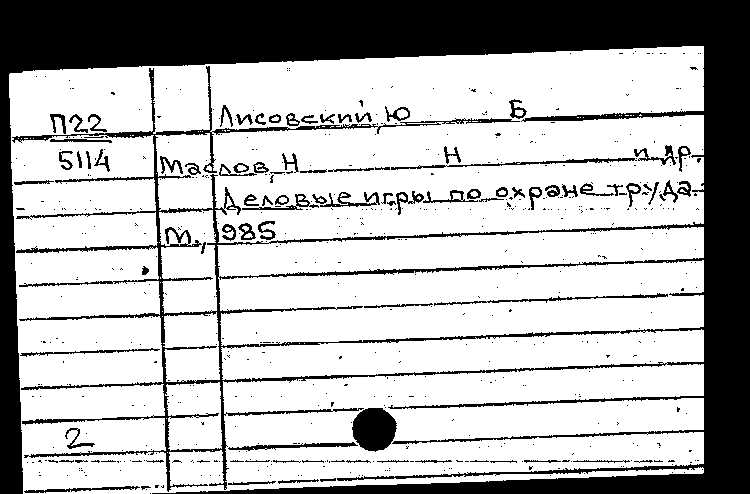 П22 Лисовский, Ю Б
5114 Маслов, Н Н и др.
Деловые игры по охране труда.-
М., 1985
2